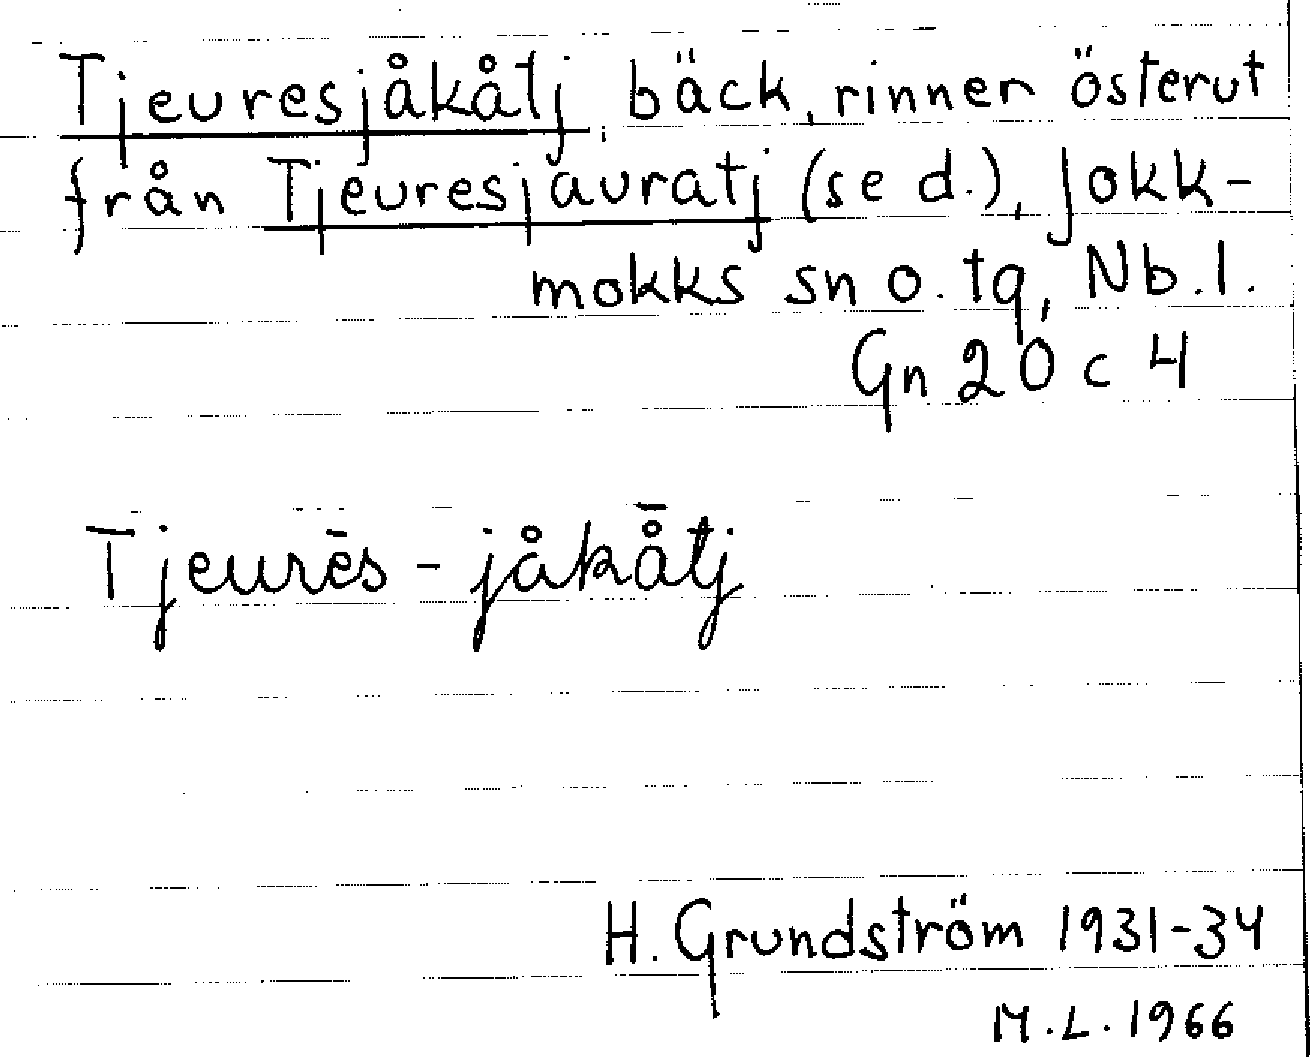 Tjeuresjåkåtj, bäck, rinner österut
från Tjeuresjauratj (se d.), Jokk-
mokks sn o. tg, Nb. l.
Gn 20 c 4
Tjeurēs - jåkå̄tj
H. Grundström 1931-34
M.L. 1966